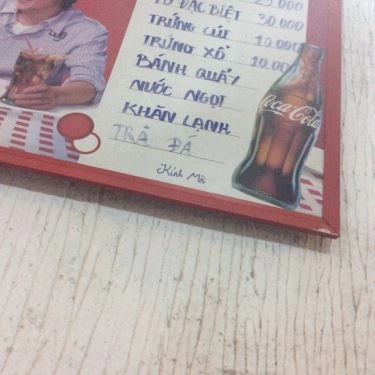 TÔ ĐẶC BIỆT 30.000
TRỨNG CÚT 10.000
TRỨNG XÔ 10.000
BÁNH QUẨY
NƯỚC NGỌT
KHĂN LẠNH
TRÀ ĐÁ
Kính Mời
Coca-Cola